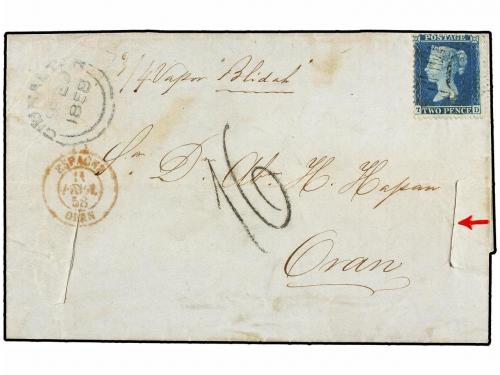 GIBRALTAR
1858
p/ Vapor "Blidah"
TWO PENCE
ESPAGNE
11
58
ORAN
Sr. Dn. Abr. H. Hassan
16
Oran